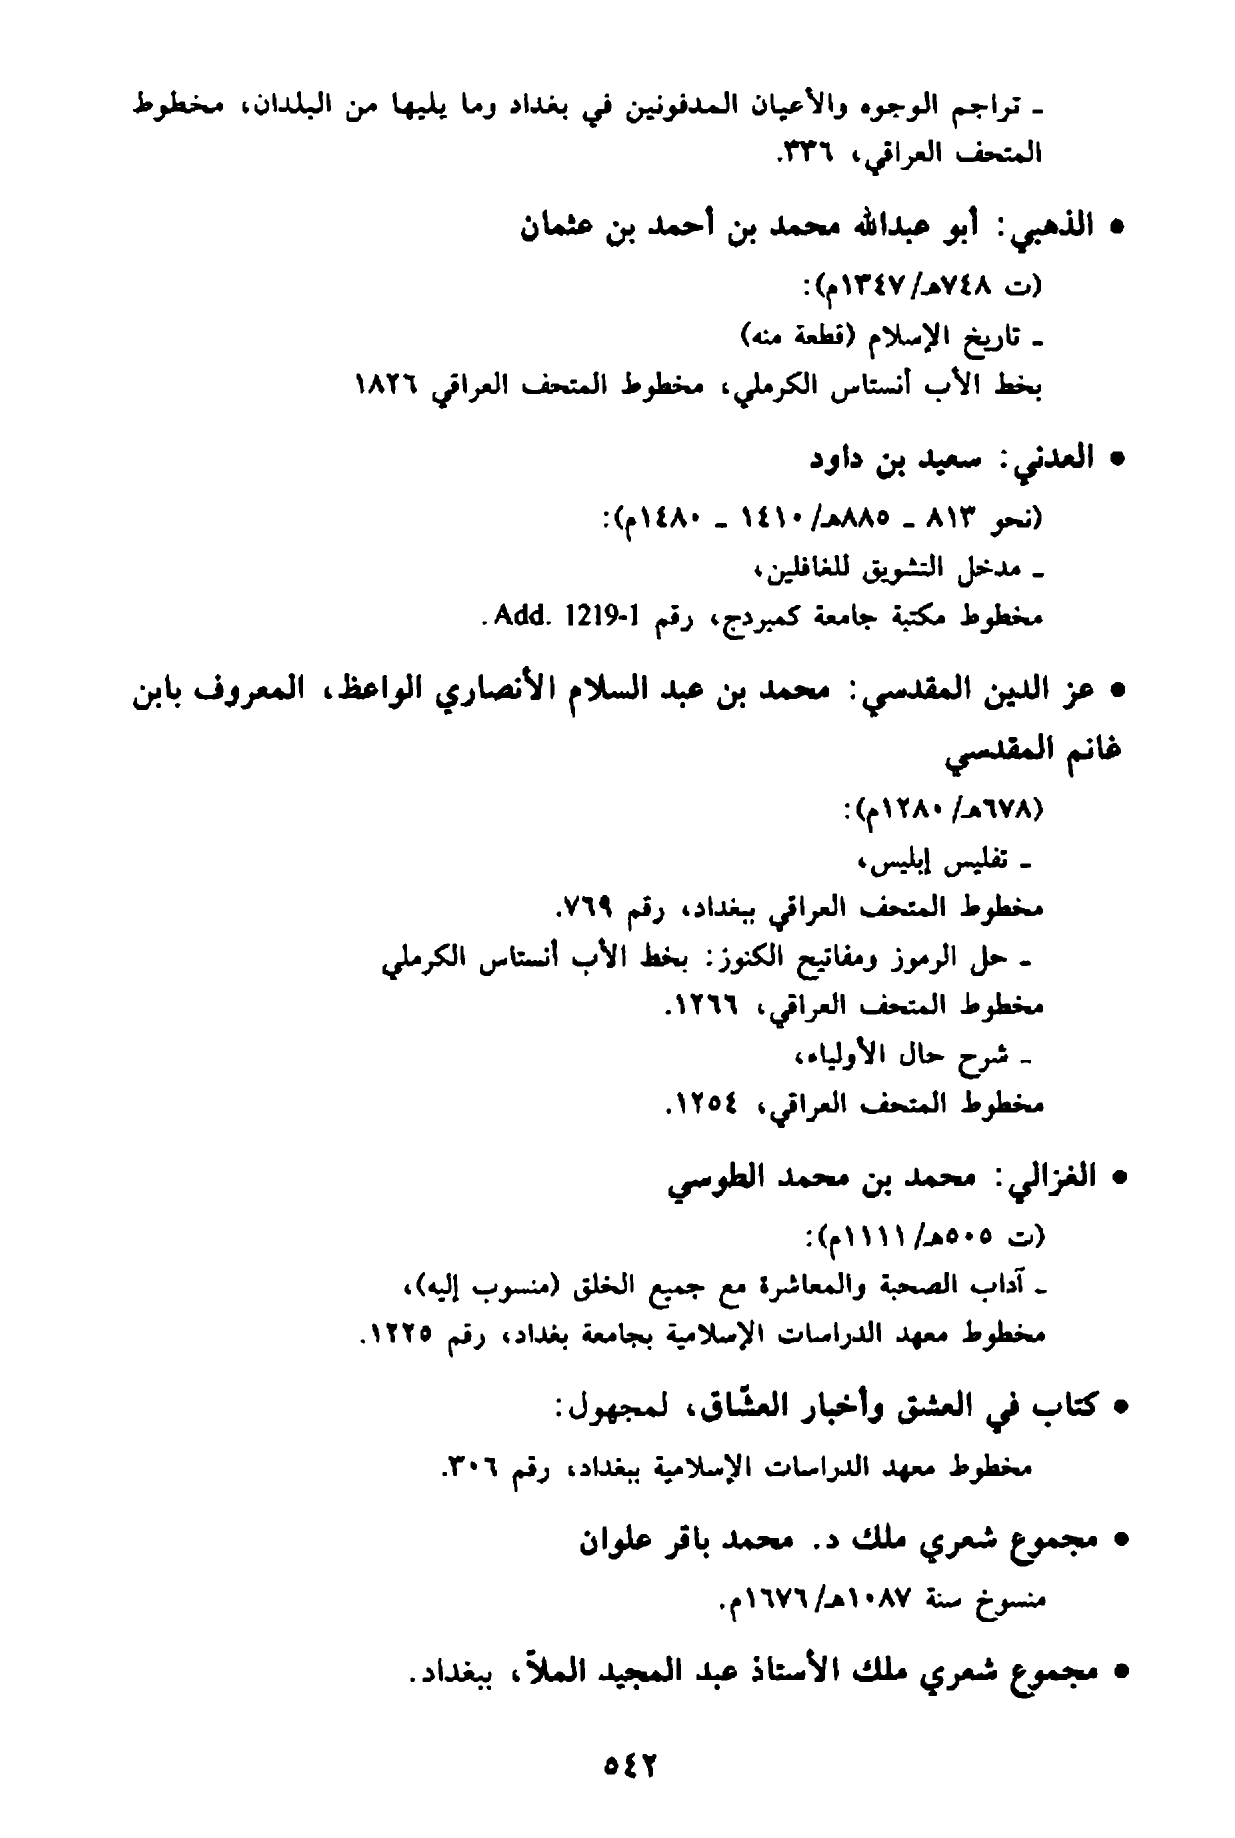 ـ تراجم الوجوه والأعيان المدفونين في بغداد وما يليها من البلدان، مخطوط
المتحف العراقي، ٣٣٦.
● الذهبي: أبو عبدالله محمد بن أحمد بن عثمان
(ت ٧٤٨هـ/١٣٤٧م):
ـ تاريخ الإسلام (قطعة منه)
بخط الأب أنستاس الكرملي، مخطوط المتحف العراقي ١٨٢٦
● العدني: سعيد بن داود
(نحو ٨١٣ ـ ٨٨٥هـ/١٤١٠ ـ ١٤٨٠م):
ـ مدخل التشويق للغافلين،
مخطوط مكتبة جامعة كمبردج، رقم Add. 1219-1.
● عز الدين المقدسي: محمد بن عبد السلام الأنصاري الواعظ، المعروف بابن
غانم المقدسي
(٦٧٨هـ/١٢٨٠م):
ـ تفليس إبليس،
مخطوط المتحف العراقي ببغداد، رقم ٧٦٩.
ـ حل الرموز ومفاتيح الكنوز: بخط الأب أنستاس الكرملي
مخطوط المتحف العراقي، ١٢٦٦.
ـ شرح حال الأولياء،
مخطوط المتحف العراقي، ١٢٥٤.
● الغزالي: محمد بن محمد الطوسي
(ت ٥٠٥هـ/١١١١م):
ـ آداب الصحبة والمعاشرة مع جميع الخلق (منسوب إليه)،
مخطوط معهد الدراسات الإسلامية بجامعة بغداد، رقم ١٢٢٥.
● كتاب في العشق وأخبار العشّاق، لمجهول:
مخطوط معهد الدراسات الإسلامية ببغداد، رقم ٣٠٦.
● مجموع شعري ملك د. محمد باقر علوان
منسوخ سنة ١٠٨٧هـ/١٦٧٦م.
● مجموع شعري ملك الأستاذ عبد المجيد الملاّ، ببغداد.
٥٤٢